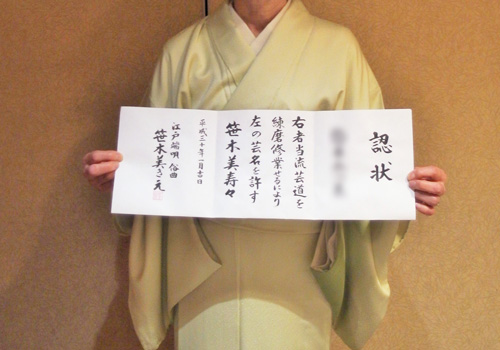 認状
右者当流芸道を
練磨修業せるにより
左の芸名を許す
笹木美寿々
平成三十年一月吉日
江戸端唄 俗曲
笹木美き元